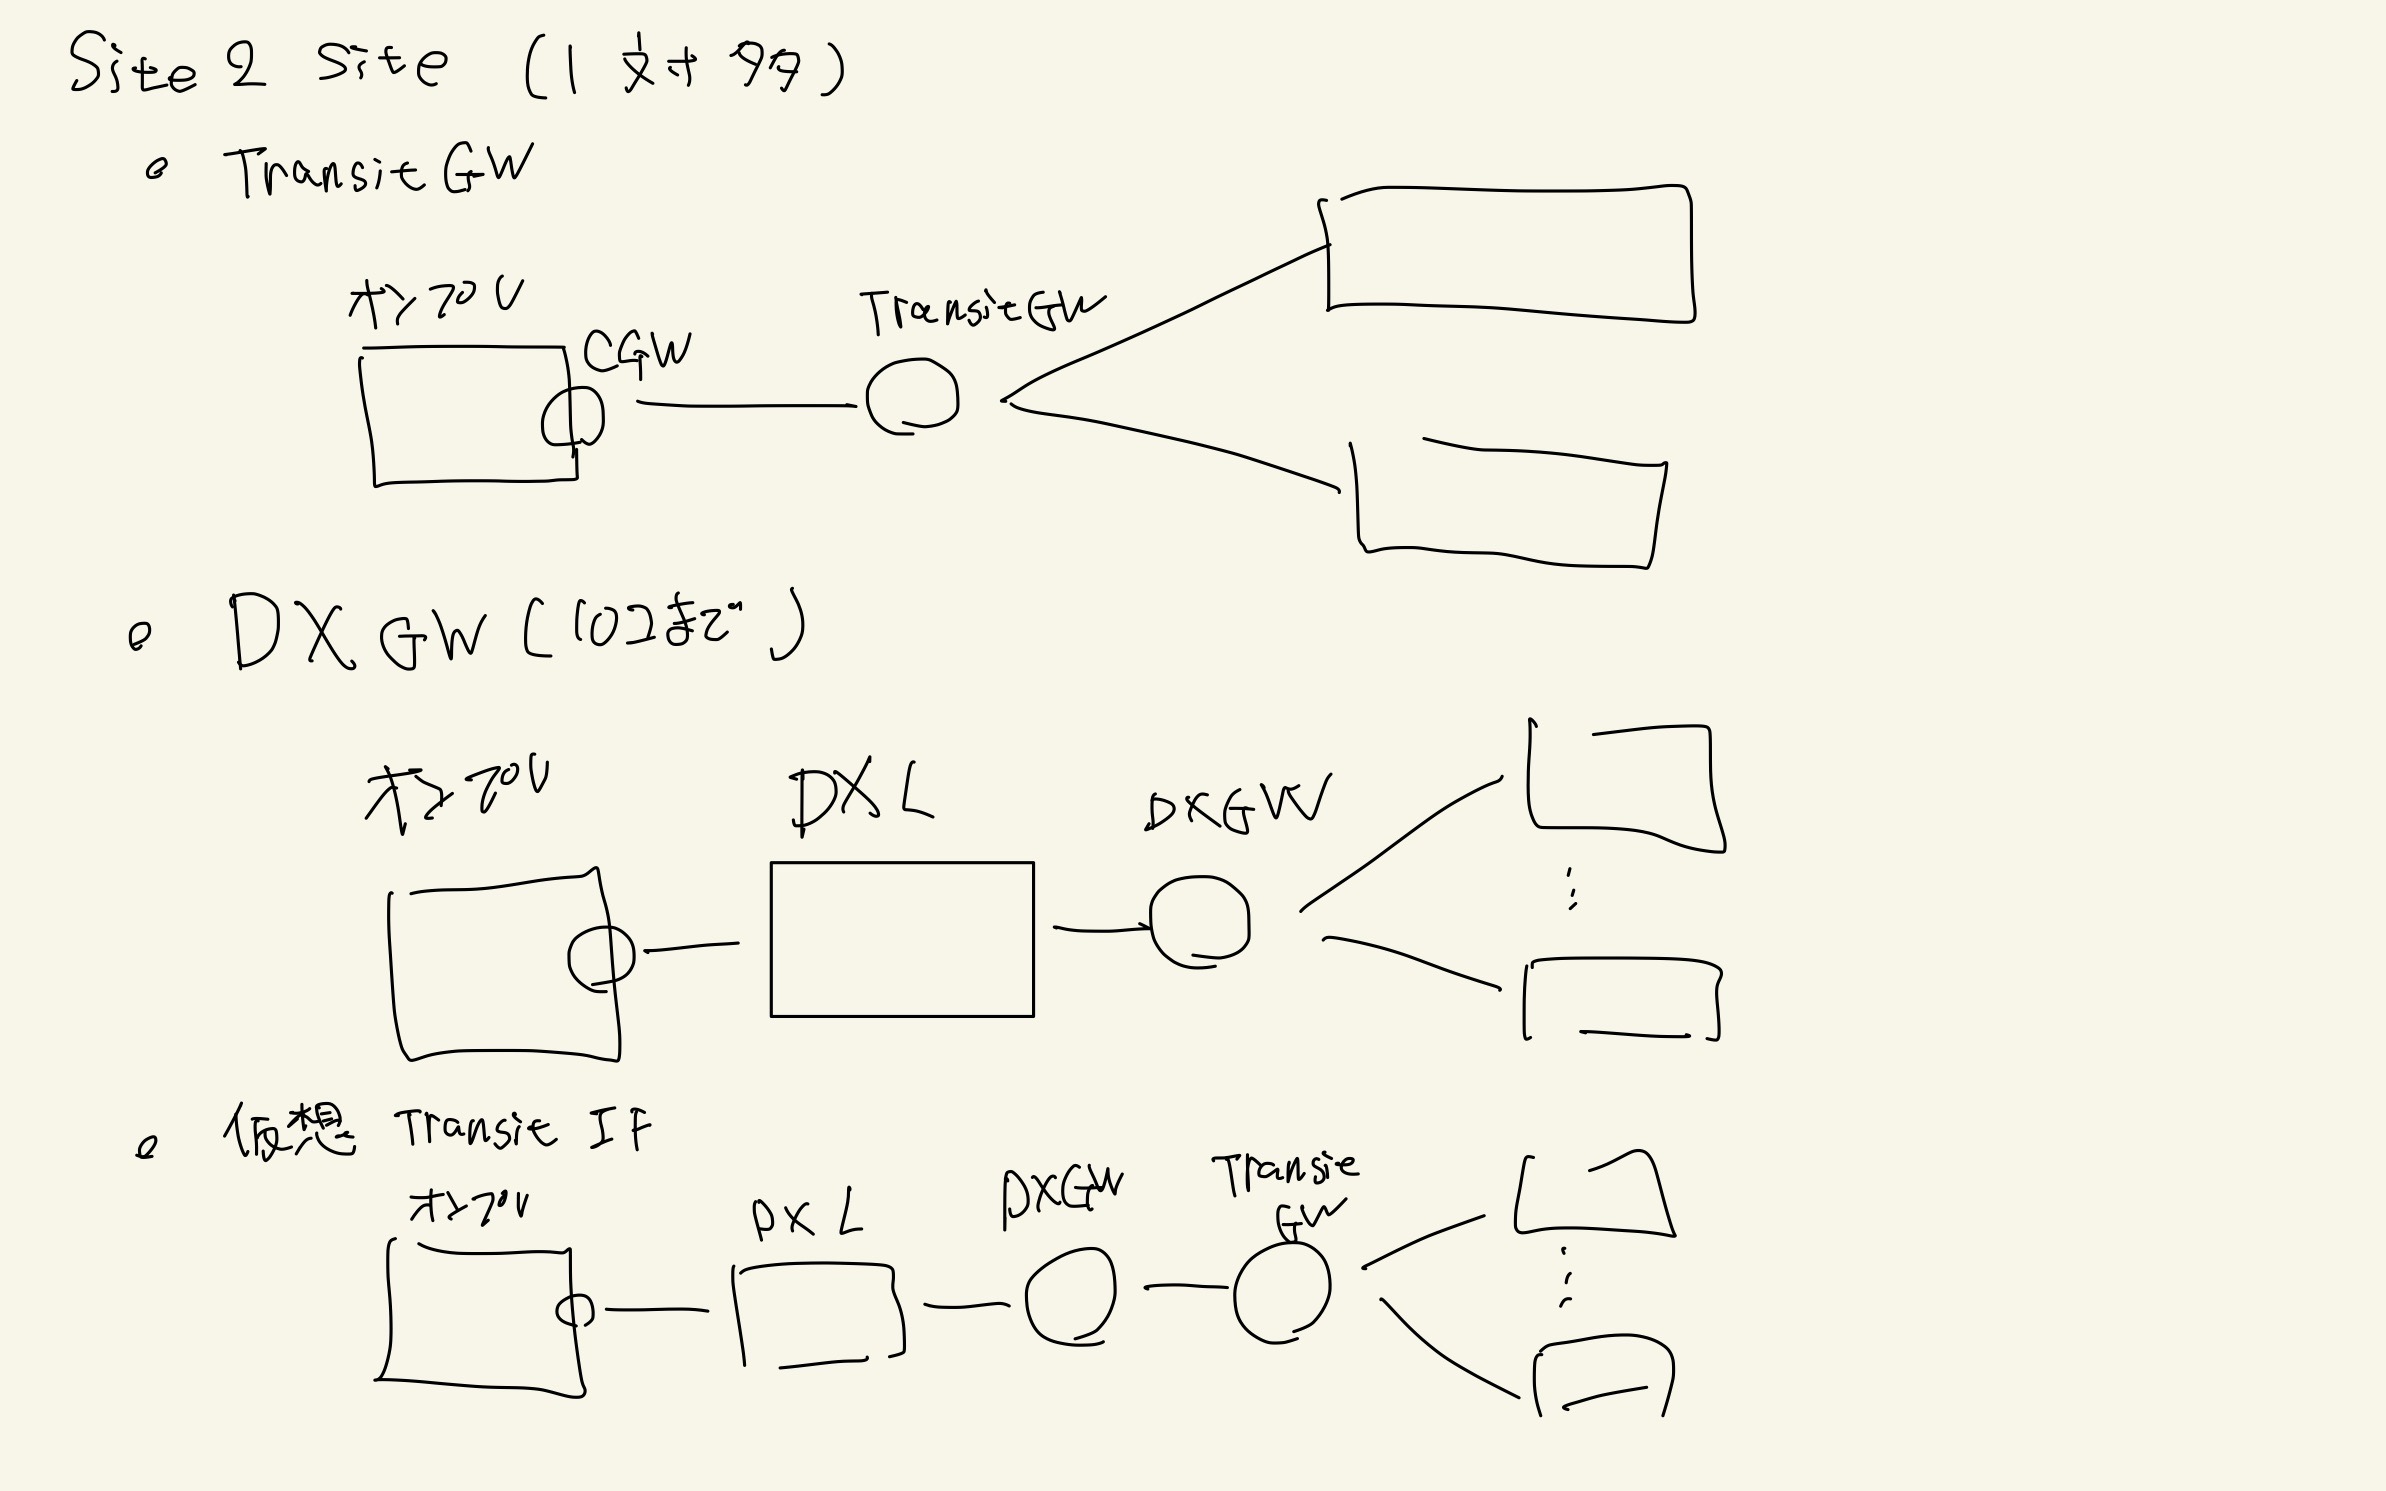 Site 2 Site (1対多)
Transit GW
オンプレ
CGW
Transit GW
DX GW (10コまで)
オンプレ
DXL
DXGW
仮想 Transit IF
オンプレ
DXL
DXGW
Transit
GW